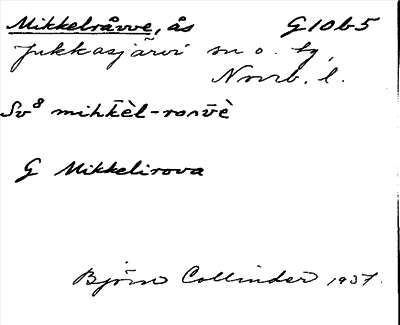 Mikkelråvve, ås G10b5
Jukkasjärvi sn o. tg,
Norrb. l.
Sv⁸ mihk̄èl-rοαv̄è
G Mikkelirova
Björn Collinder 1937.